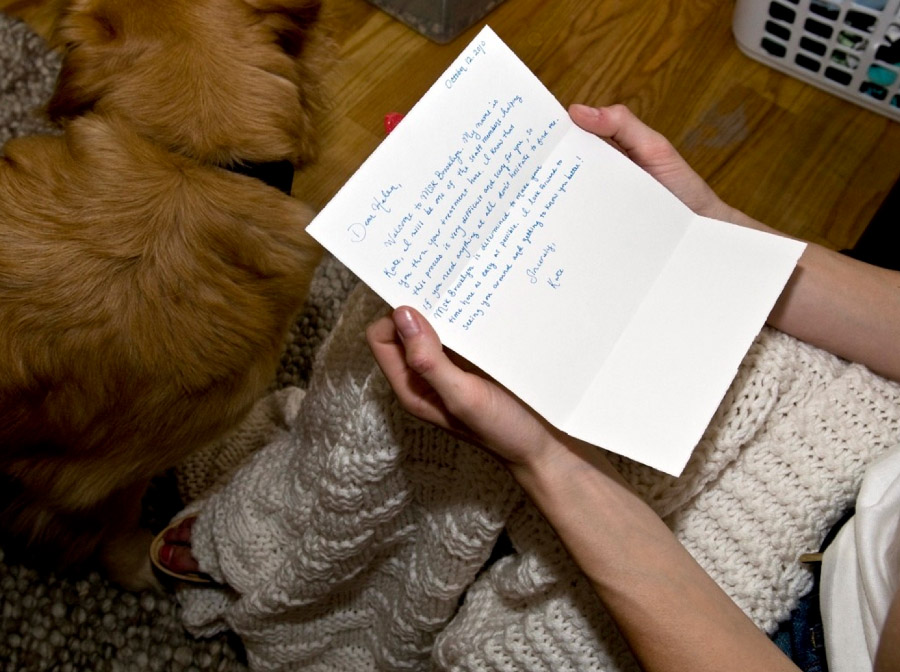 October 12, 2010
Dear Helen,
Welcome to MSK Brooklyn. My name is
Kate, I will be one of the staff members helping
you thru your treatment here. I know that
this process is very difficult and scary for you, so
if you need anything at all don't hesitate to find me.
MSK Brooklyn is determined to make your
time here as easy as possible. I look forward to
seeing you around and getting to know you better!
Sincerely,
Kate